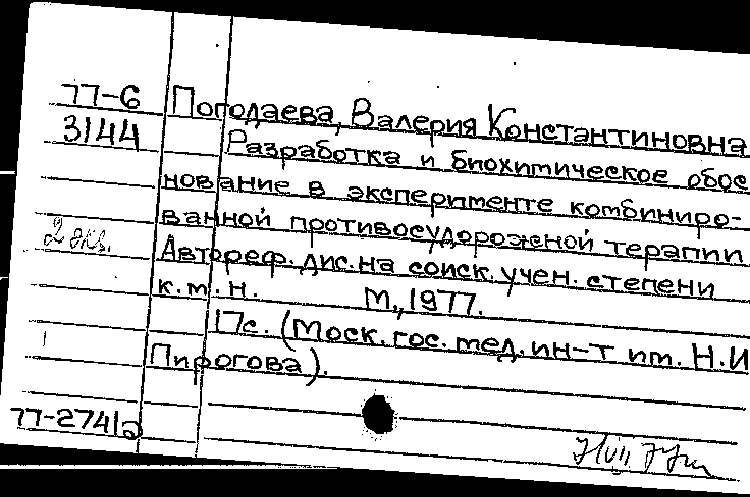 77-6 Погодаева, Валерия Константиновна
3144 Разработка и биохимическое обос
нование в эксперименте комбиниро-
ванной противосудорожной терапии
2 экз.
Автореф. дис. на соиск. учен. степени
к.м.н. М., 1977.
17с. (Моск. гос. мед. ин-т им. Н.И
Пирогова).
77-2741а